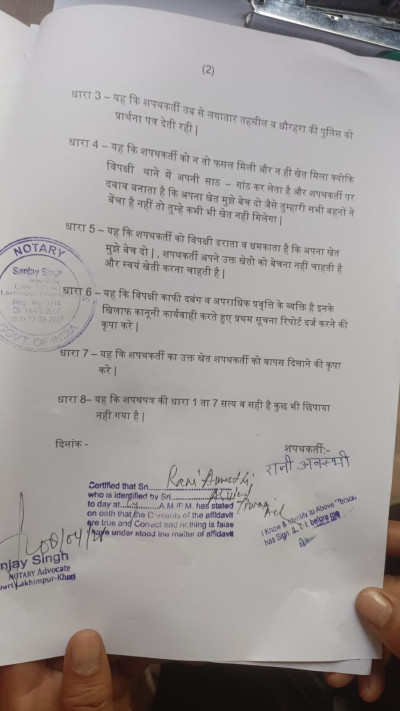 (2)
धारा 3 – यह कि शपथकर्ती तब से लगातार तहसील व धौरहरा की पुलिस को
प्रार्थना पत्र देती रही |
धारा 4 – यह कि शपथकर्ती को न तो फसल मिली और न ही खेत मिला क्योकि
विपक्षी थाने में अपनी साठ – गांठ कर लेता है और शपथकर्ती पर
दबाव बनाता है कि अपना खेत मुझे बेच दो जैसे तुम्हारी सभी बहनों ने
बेंचा है नहीं तो तुम्हे कभी भी खेत नही मिलेगा |
धारा 5 – यह कि शपथकर्ती को विपक्षी डराता व धमकाता है कि अपना खेत
मुझे बेच दो | , शपथकर्ती अपने उक्त खेतो को बेचना नहीं चाहती है
और स्वयं खेती करना चाहती है |
धारा 6 – यह कि विपक्षी काफी दबंग व अपराधिक प्रवृत्ति के व्यक्ति है इनके
खिलाफ कानूनी कार्यवाही करते हुए प्रथम सूचना रिपोर्ट दर्ज करने की
कृपा करे |
धारा 7 – यह कि शपथकर्ती का उक्त खेत शपथकर्ती को वापस दिलाने की कृपा
करे |
धारा 8– यह कि शपथपत्र की धारा 1 ता 7 सत्य व सही है कुछ भी छिपाया
नही गया है |
दिनांक -
शपथकर्ती:-
रानी अवस्थी
NOTARY
Sanjay Singh
GOVT. OF INDIA
Certified that Sri Rani Awasthi
who is identified by Sri
to day at A.M./P.M. has stated
on oath that the Contents of the affidavit
are true and Correct and nothing is false
have under stood the matter of affidavit
I Know & Identify to Above
has Sign & T.I before me
njay Singh
NOTARY Advocate
ourt Lakhimpur-Kheri